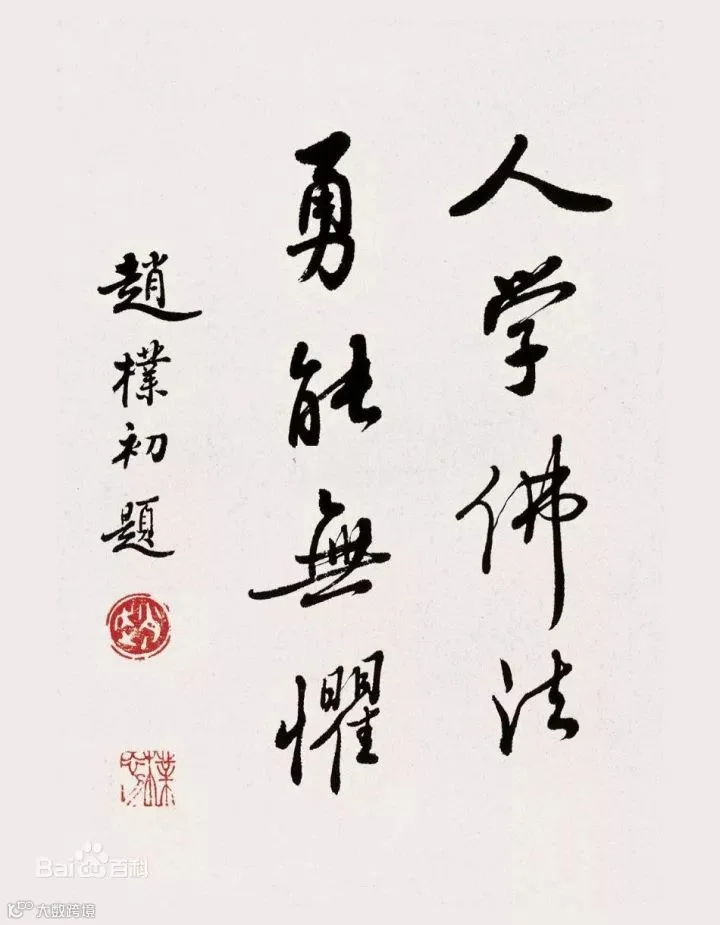 人学佛法
勇能無懼
趙樸初題
Bai百科
大数跨境